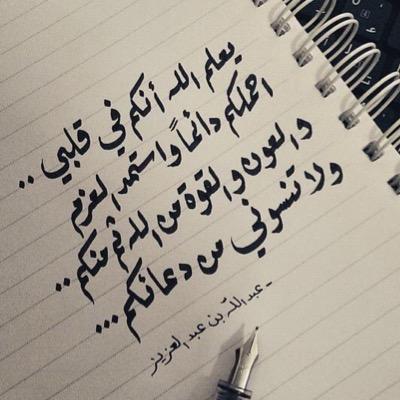 يعلم الله أنكم في قلبي ..
احملكم دائماً واستمد العزم
والعون والقوة من الله ثم منكم ..
ولا تنسوني من دعائكم ...
- عبدالله بن عبدالعزيز